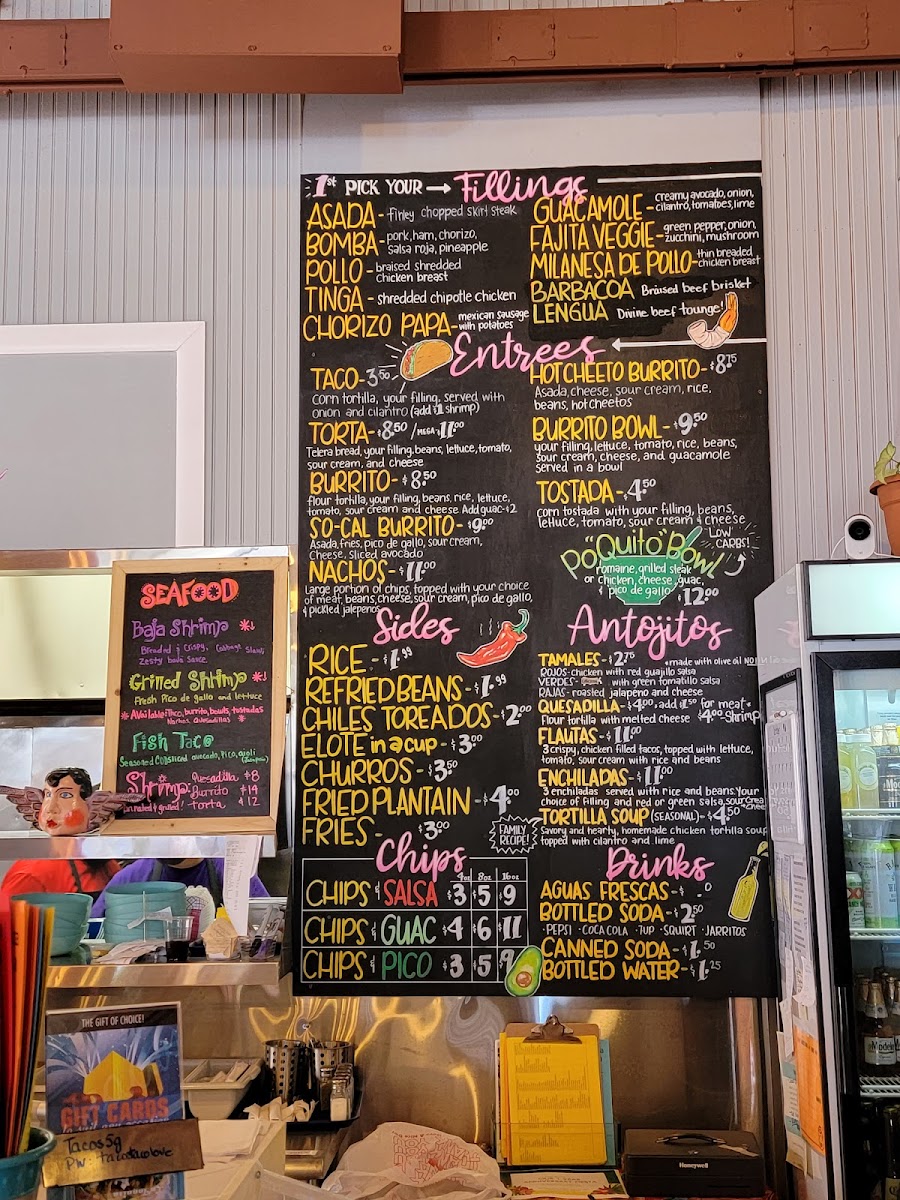 1st PICK YOUR → Fillings
ASADA - finley chopped skirt steak
BOMBA - pork, ham, chorizo,
salsa roja, pineapple
POLLO - braised shredded
chicken breast
TINGA - shredded chipotle chicken
CHORIZO PAPA - mexican sausage
with potatoes
GUACAMOLE - creamy avocado, onion,
cilantro, tomatoes, lime
FAJITA VEGGIE - green pepper, onion,
zucchini, mushroom
MILANESA DE POLLO - thin breaded
chicken breast
BARBACOA Braised beef brisket
LENGUA Divine beef tounge!
Entrees
TACO - 3.50
corn tortilla, your filling, served with
onion and cilantro (add $1 shrimp)
TORTA - $8.50 / MEGA $11.00
Telera bread, your filling, beans, lettuce, tomato,
sour cream, and cheese
BURRITO - $8.50
flour tortilla, your filling, beans, rice, lettuce,
tomato, sour cream and cheese Add guac - $2
SO-CAL BURRITO - $9.00
Asada, fries, pico de gallo, sour cream,
cheese, sliced avocado
NACHOS - $11.00
Large portion of chips, topped with your choice
of meat, beans, cheese, sour cream, pico de gallo,
& pickled jalepenos
HOT CHEETO BURRITO - $8.75
Asada, cheese, sour cream, rice,
beans, hot cheetos
BURRITO BOWL - $9.50
your filling, lettuce, tomato, rice, beans,
sour cream, cheese, and guacamole
served in a bowl
TOSTADA - $4.50
corn tostada with your filling, beans,
lettuce, tomato, sour cream & cheese
"PoQuito" Bowl
LOW CARBS!
romaine, grilled steak
or chicken, cheese, guac,
& pico de gallo $12.00
Sides
RICE - $1.99
REFRIED BEANS - $1.99
CHILES TOREADOS - $2.00
ELOTE in a cup - $3.00
CHURROS - $3.50
FRIED PLANTAIN - $4.00
FRIES - $3.00
Chips
4oz 8oz 16oz
CHIPS & SALSA $3 $5 $9
CHIPS & GUAC $4 $6 $11
CHIPS & PICO $3 $5 $9
Antojitos
TAMALES - $2.75 *made with olive oil NO
ROJOS - chicken with red guajillo salsa
VERDES - with green tomatillo salsa
RAJAS - roasted jalapeno and cheese
QUESADILLA - $4.00, add $1.50 for meat*
Flour tortilla with melted cheese $4.00 shrimp
FLAUTAS - $11.00
3 crispy, chicken filled tacos, topped with lettuce,
tomato, sour cream with rice and beans
ENCHILADAS - $11.00
3 enchiladas served with rice and beans. Your
choice of filling and red or green salsa, sour crea
TORTILLA SOUP (SEASONAL) - $4.50
Savory and hearty, homemade chicken tortilla soup
topped with cilantro and lime
FAMILY
RECIPE!
Drinks
AGUAS FRESCAS - $ 0
BOTTLED SODA - $2.50
· PEPSI · COCA COLA · 7UP · SQUIRT · JARRITOS
CANNED SODA - $1.50
BOTTLED WATER - $1.25
SEAFOOD
Baja Shrimp
Breaded & Crispy, Cabbage Slaw,
zesty baja sauce
Grilled Shrimp
Fresh Pico de gallo and lettuce
*Available: Taco, burrito, bowls, tostadas
Nachos, Quesadillas *
Fish Taco
Seasoned Cod, sliced avocado, Pico, ajoli
Shrimp: Quesadilla $8
Burrito $14
torta $12
THE GIFT OF CHOICE!
GIFT CARDS
Tacos5g
PW: tacotruclove
Honeywell
Modelo